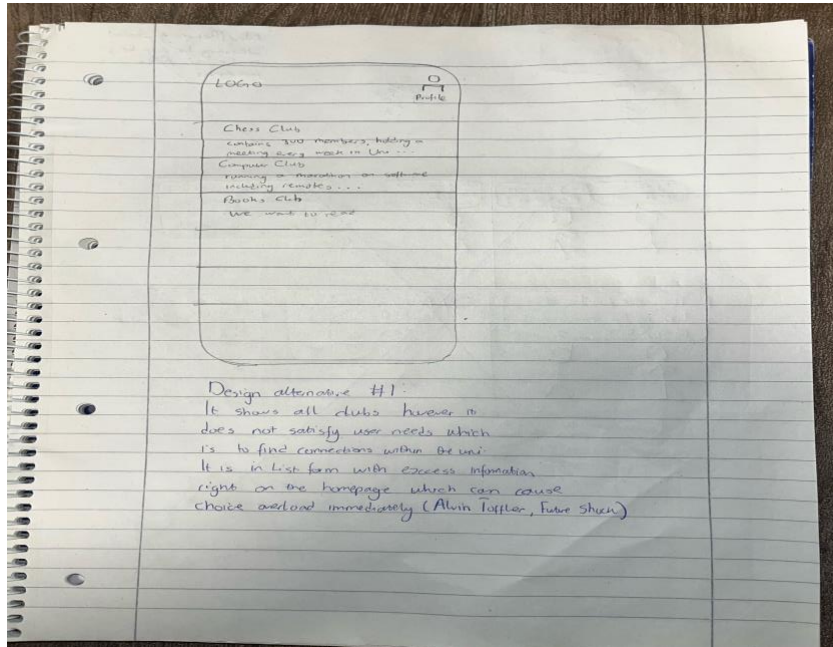 LOGO
Profile
Chess Club
contains 300 members, holding a
meeting every week in Uni ...
Computer Club
running a marathon on software
including remotes ...
Books Club
We want to read
Design alternative #1:
It shows all clubs however it
does not satisfy user needs which
is to find connections within the uni.
It is in List form with excess information
right on the homepage which can cause
choice overload immediately (Alvin Toffler, Future Shock)